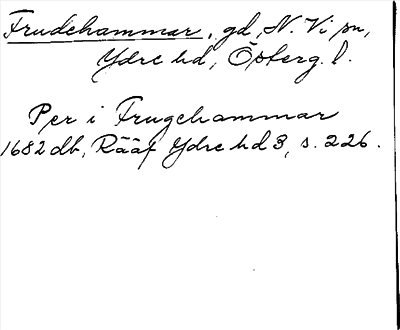 Frudehammar, gd, N. Vi sn,
Ydre hd, Österg. l.
Per i Frugehammar
1682 db, Rääf Ydre hd 3, s. 226.